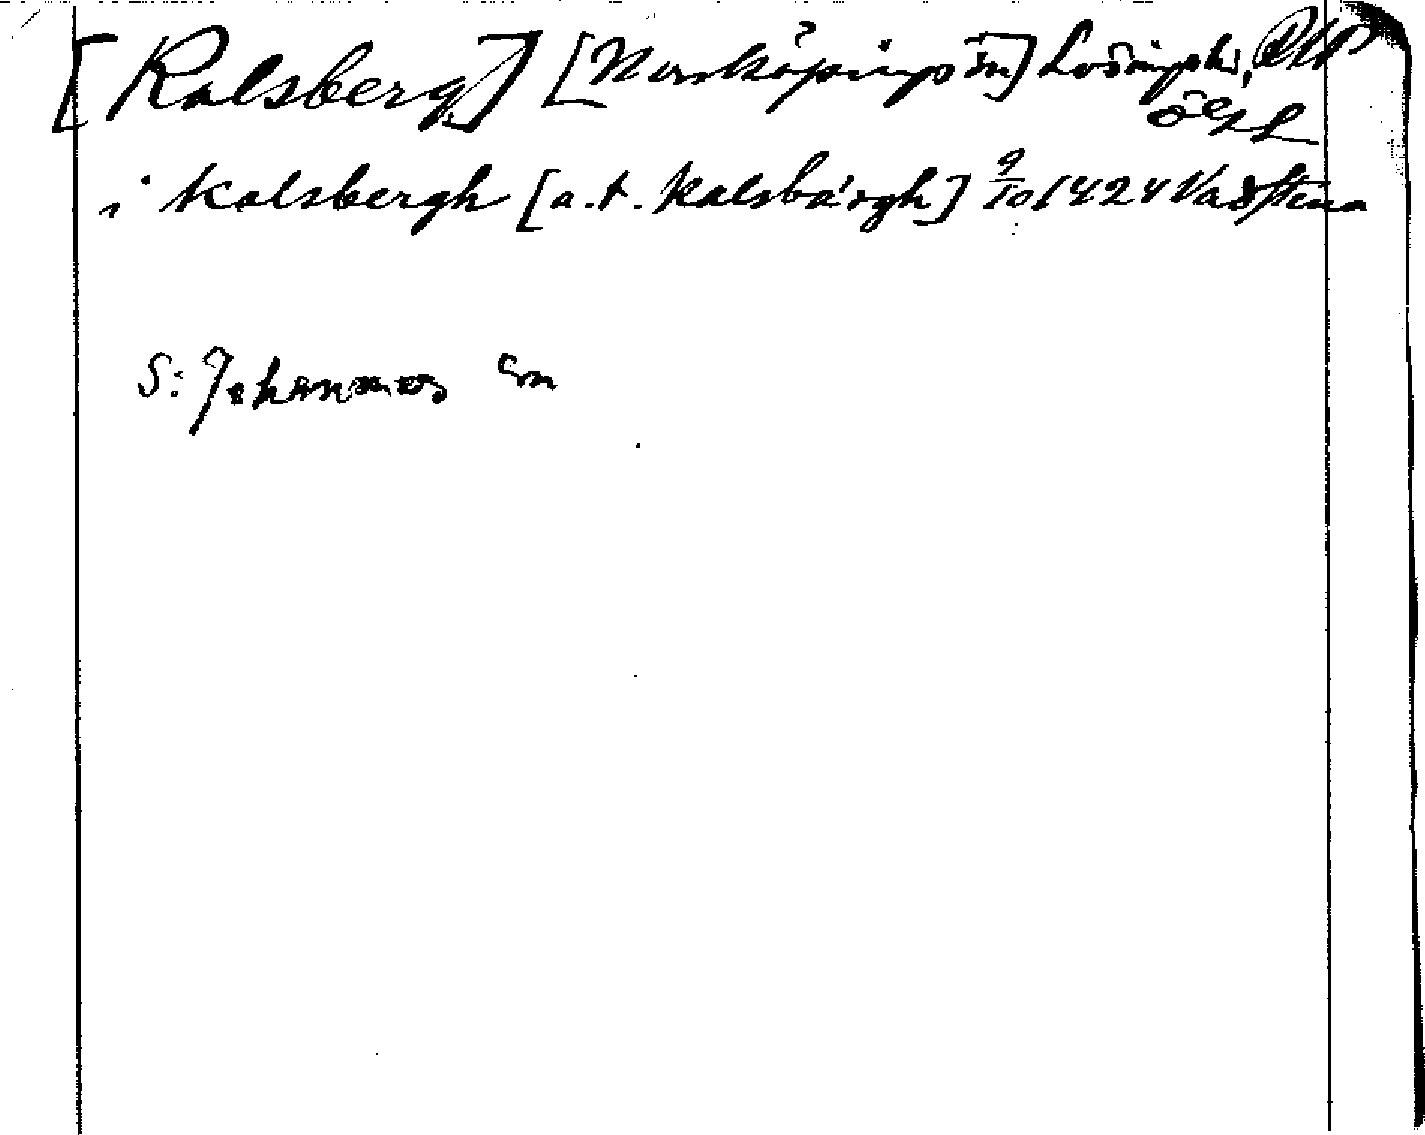 [Kalsberg] [Norrköping sn] Lösings hd,
ögtl
i kalsbergh [a.t. kalsbärgh] 9/10 1424 Vadstena
S: Johannes sn